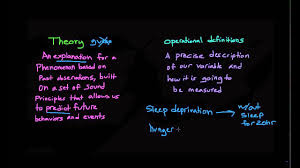 Theory
An explanation for a
Phenomenon based on
Past observations, built
On a set of sound
Principles that allows us
to predict future
behaviors and events
operational definitions
A precise description
of our variable and
how it is going to
be measured
Sleep deprivation → w/out
sleep
for 24hr
hunger